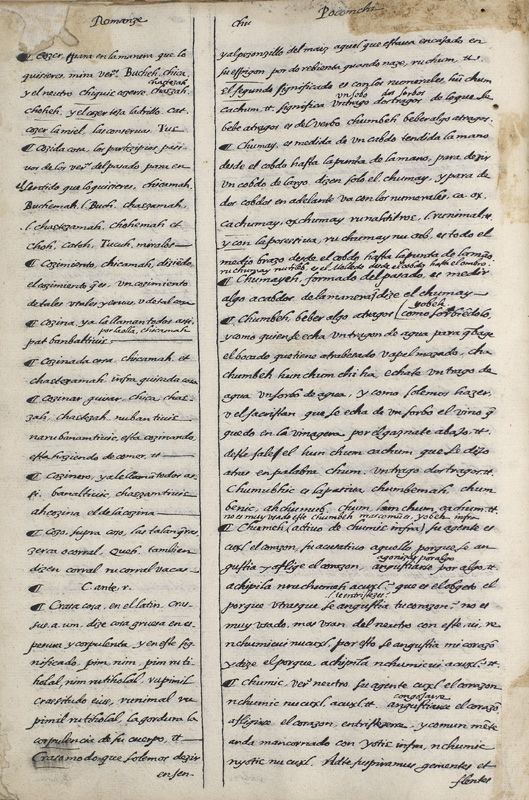 Romanze
¶ Cozer, para en la manera que lo
quisieres, mira verº. Bucheh, chica,
chactezah
y el neutro chiquic cozerse, chaczah,
choheh, y el cozer teja ladrillo. cat.
cozer la miel, las conservas. Tuc
¶ Cozida cosa, los participios pasi
vos de los verº. del pasado para en
el sentido que lo quisieres, chicamah,
Buchemah. l. Buch, chaczamah,
l. chactezamah, chohemah et
choh, cateh, Tucuh, miralos
¶ Cozimiento, chicamah, diziẽdo
el cozimiento q̃ es. un cozimiento
de tales y tales yervas. o de tal cosa
¶ Cozina, ya la llaman todos assi,
por la olla, chicamah
pat banbaltiuic
¶ Cozinada cosa, chicamah, et
chactezamah. infra guisada cosa
¶ Cozinar guisar, chica, chac-
zah, chactezah, nubantiuic
narubanamtiuic, esta cozinando,
esta haziendo de comer, et
¶ Cozinero, ya le llamã todos as-
si. banaltiuic, chaczamtiuic
ah cozina el de la cozina
¶ Cozo, supra cojo, las tabançras
zerca o corral, Queh, tambien
dizen corral nu corral vacas
C. ante, r.
¶ Crasa cosa, en el latin, cras
sus, a, um, dize cosa gruesa en es
pesura y corpulenta, y en este sig
nificado, pim, nim, pim ru ti
holal, nim rutiholal, rupimil
crassitudo eius, runimal ru
pimil rutiholal, la gordura la
corpulencia de su cuerpo, et
Crasomodo que solemos dezir
en sen-
chu
Pocomchi
y al pezonzillo del maiz aquel que estava encajado en
su espigon por do rebienta quando naze, ruchum. et.
El segundo significado es con los numerales, hũ chum
un sorbo dos sorbos
cachum, et. significa un trago dos tragos de lo que se
bebe a tragos es del verbo chumbeh beber algo a tragos.
¶ Chumay, es medida de un cobdo tendida la mano
desde el cobdo hasta la punta de la mano, para dezir
un cobdo de largo dizen solo el chumay, y para de
dos cobdos en adelante va con los numerales, ca, ox,
cachumay, oxchumay
y con la posesiva, ruchumay nu cob, es todo el
medio brazo desde el cobdo hasta la punta de la mano,
ruchumay nuteleb, es el molledo desde el cobdo hasta el ombro
¶ Chumayeh, formado del pasado, es medir
algo a cobdos de la manera q̃ dize el chumay
yobeh
¶ Chumbeh, beber algo a tragos (como sorbiẽdolo
y como quien se echa un tragon de agua para q̃ baje
el bocado que tiene atrabesado va pelmazado, cha
chumbeh hunchum chi ha, echate un trago de
agua un sorbo de agua, y como solemos hazer,
v el sacristan que se echa de un sorbo el vino q̃
quedo en la vinagera por el gaznate abajo. et.
deste sale el hun chum cachum, que se dijo
atras en palabra chum, un trago dos tragos. et.
Chumubhic es la pasiva chumbemah, chum
benic, ah chumub, chum, hum chum cachum, et.
no es muy usado este chumbeh mas comũ es yobeh, infra
¶ Chumeh (activo de chumic infra) su agente es
cuxl el corazon, su acusativo aquello porque se an
agonizar por algo
gustia y aflige el corazon, angustiarse por algo, et
achipila nrachumah acuxl. que es el obgeto el
l. te entristezes
porque v trasque se angustia tu corazon. no es
muy usado, mas usan del neutro con este, vi, re
nchumicvi nucuxl, por esto se angustia mi corazõ
y dize el porque, achipila nchumicvi acuxl, et.
¶ Chumic, verº neutro su agente cuxl el corazon
congojarse
nchumic nucuxl, acuxl, et. angustiarse el corazõ
afligirse el corazon, entristezerse. y comun mẽte
anda mancornado con yotic infra, nchumic
nyotic nu cuxl. Adte suspiramus gementes et
flentes